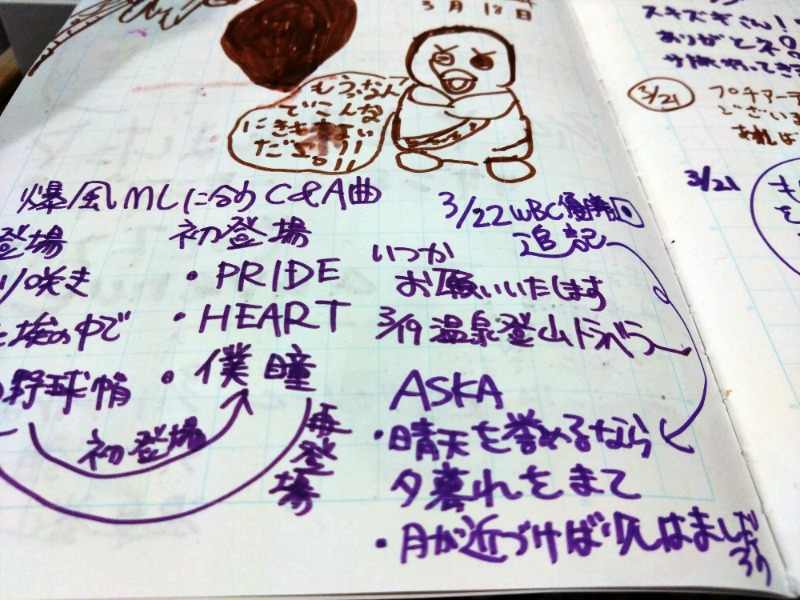 3月18日
もう、なんで
でこんな
にきもますい
だよ。!!
スキズキさん!
ありがとネ。
3/21
プチアーテ
ございま
あれば
3/21
爆風MLに含めC&A曲
登場
初登場
リ咲き
・PRIDE
と埃の中で
・HEART
の野球帽
・僕瞳
初登場
再登場
3/22 WBC優勝
追記
いつか
お願いいたします
3/19 温泉登山トラベラー
ASKA
・晴天を誉めるなら
夕暮れをまて
・月が近づけば少しはましだ
ろう